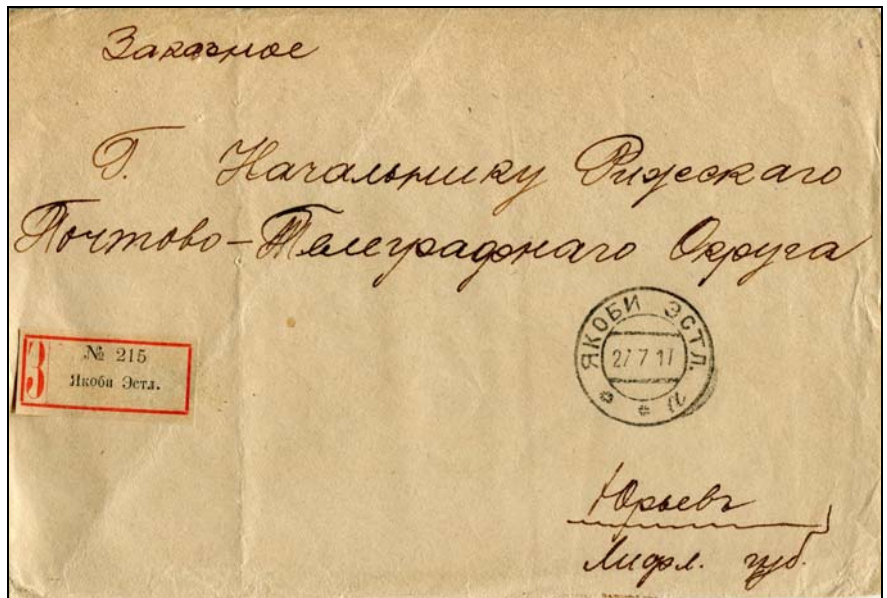 Заказное
Г. Начальнику Рижскаго
Почтово-Телеграфнаго Округа
З
№ 215
Якоби Эстл.
ЯКОБИ ЭСТЛ.
27 7 17
а
Юрьевъ
Лифл. губ.